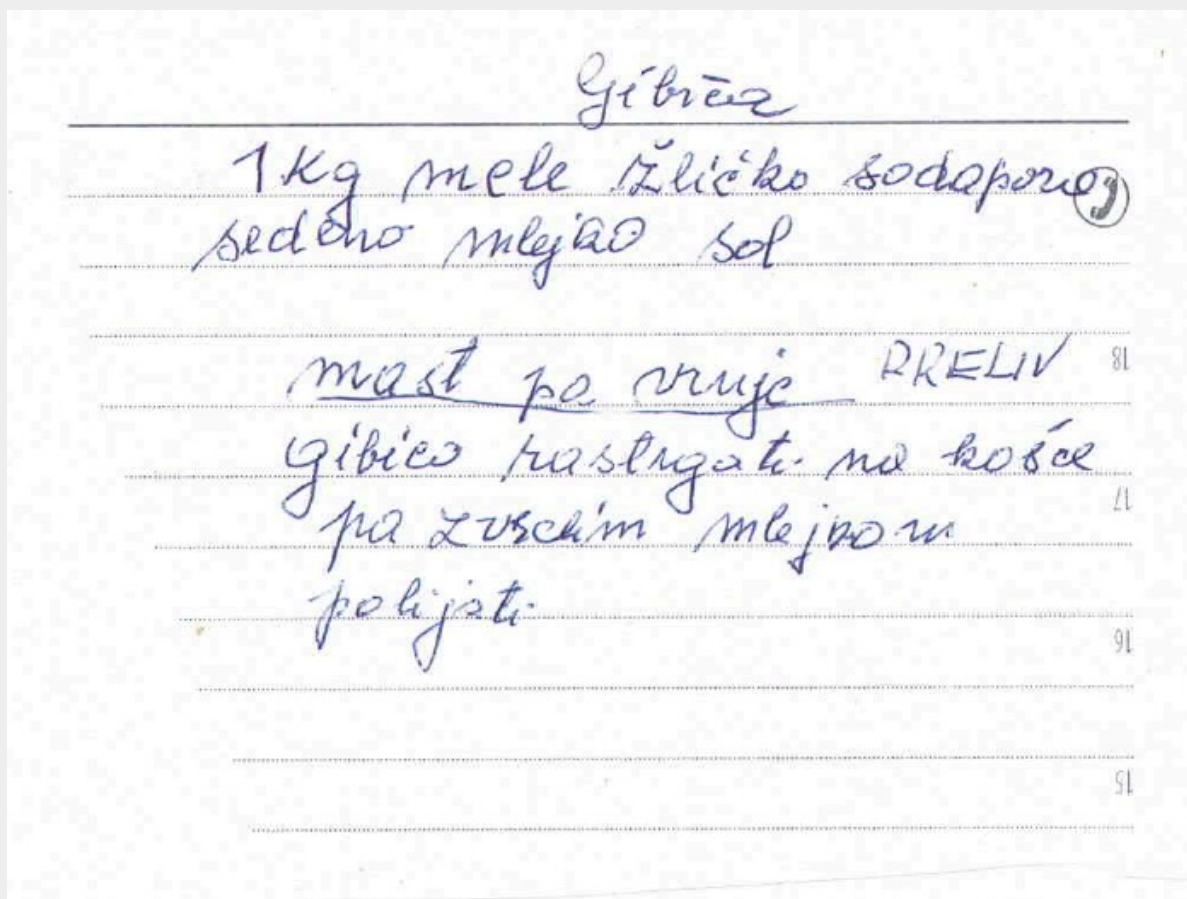 Gibica
1 kg mele žličko sodapono
sedeno mlejko sol
mast pa vruje PRELIV
18
gibico rastrgati na košce
17
pa zvrelim mlejkom
polijati
16
15